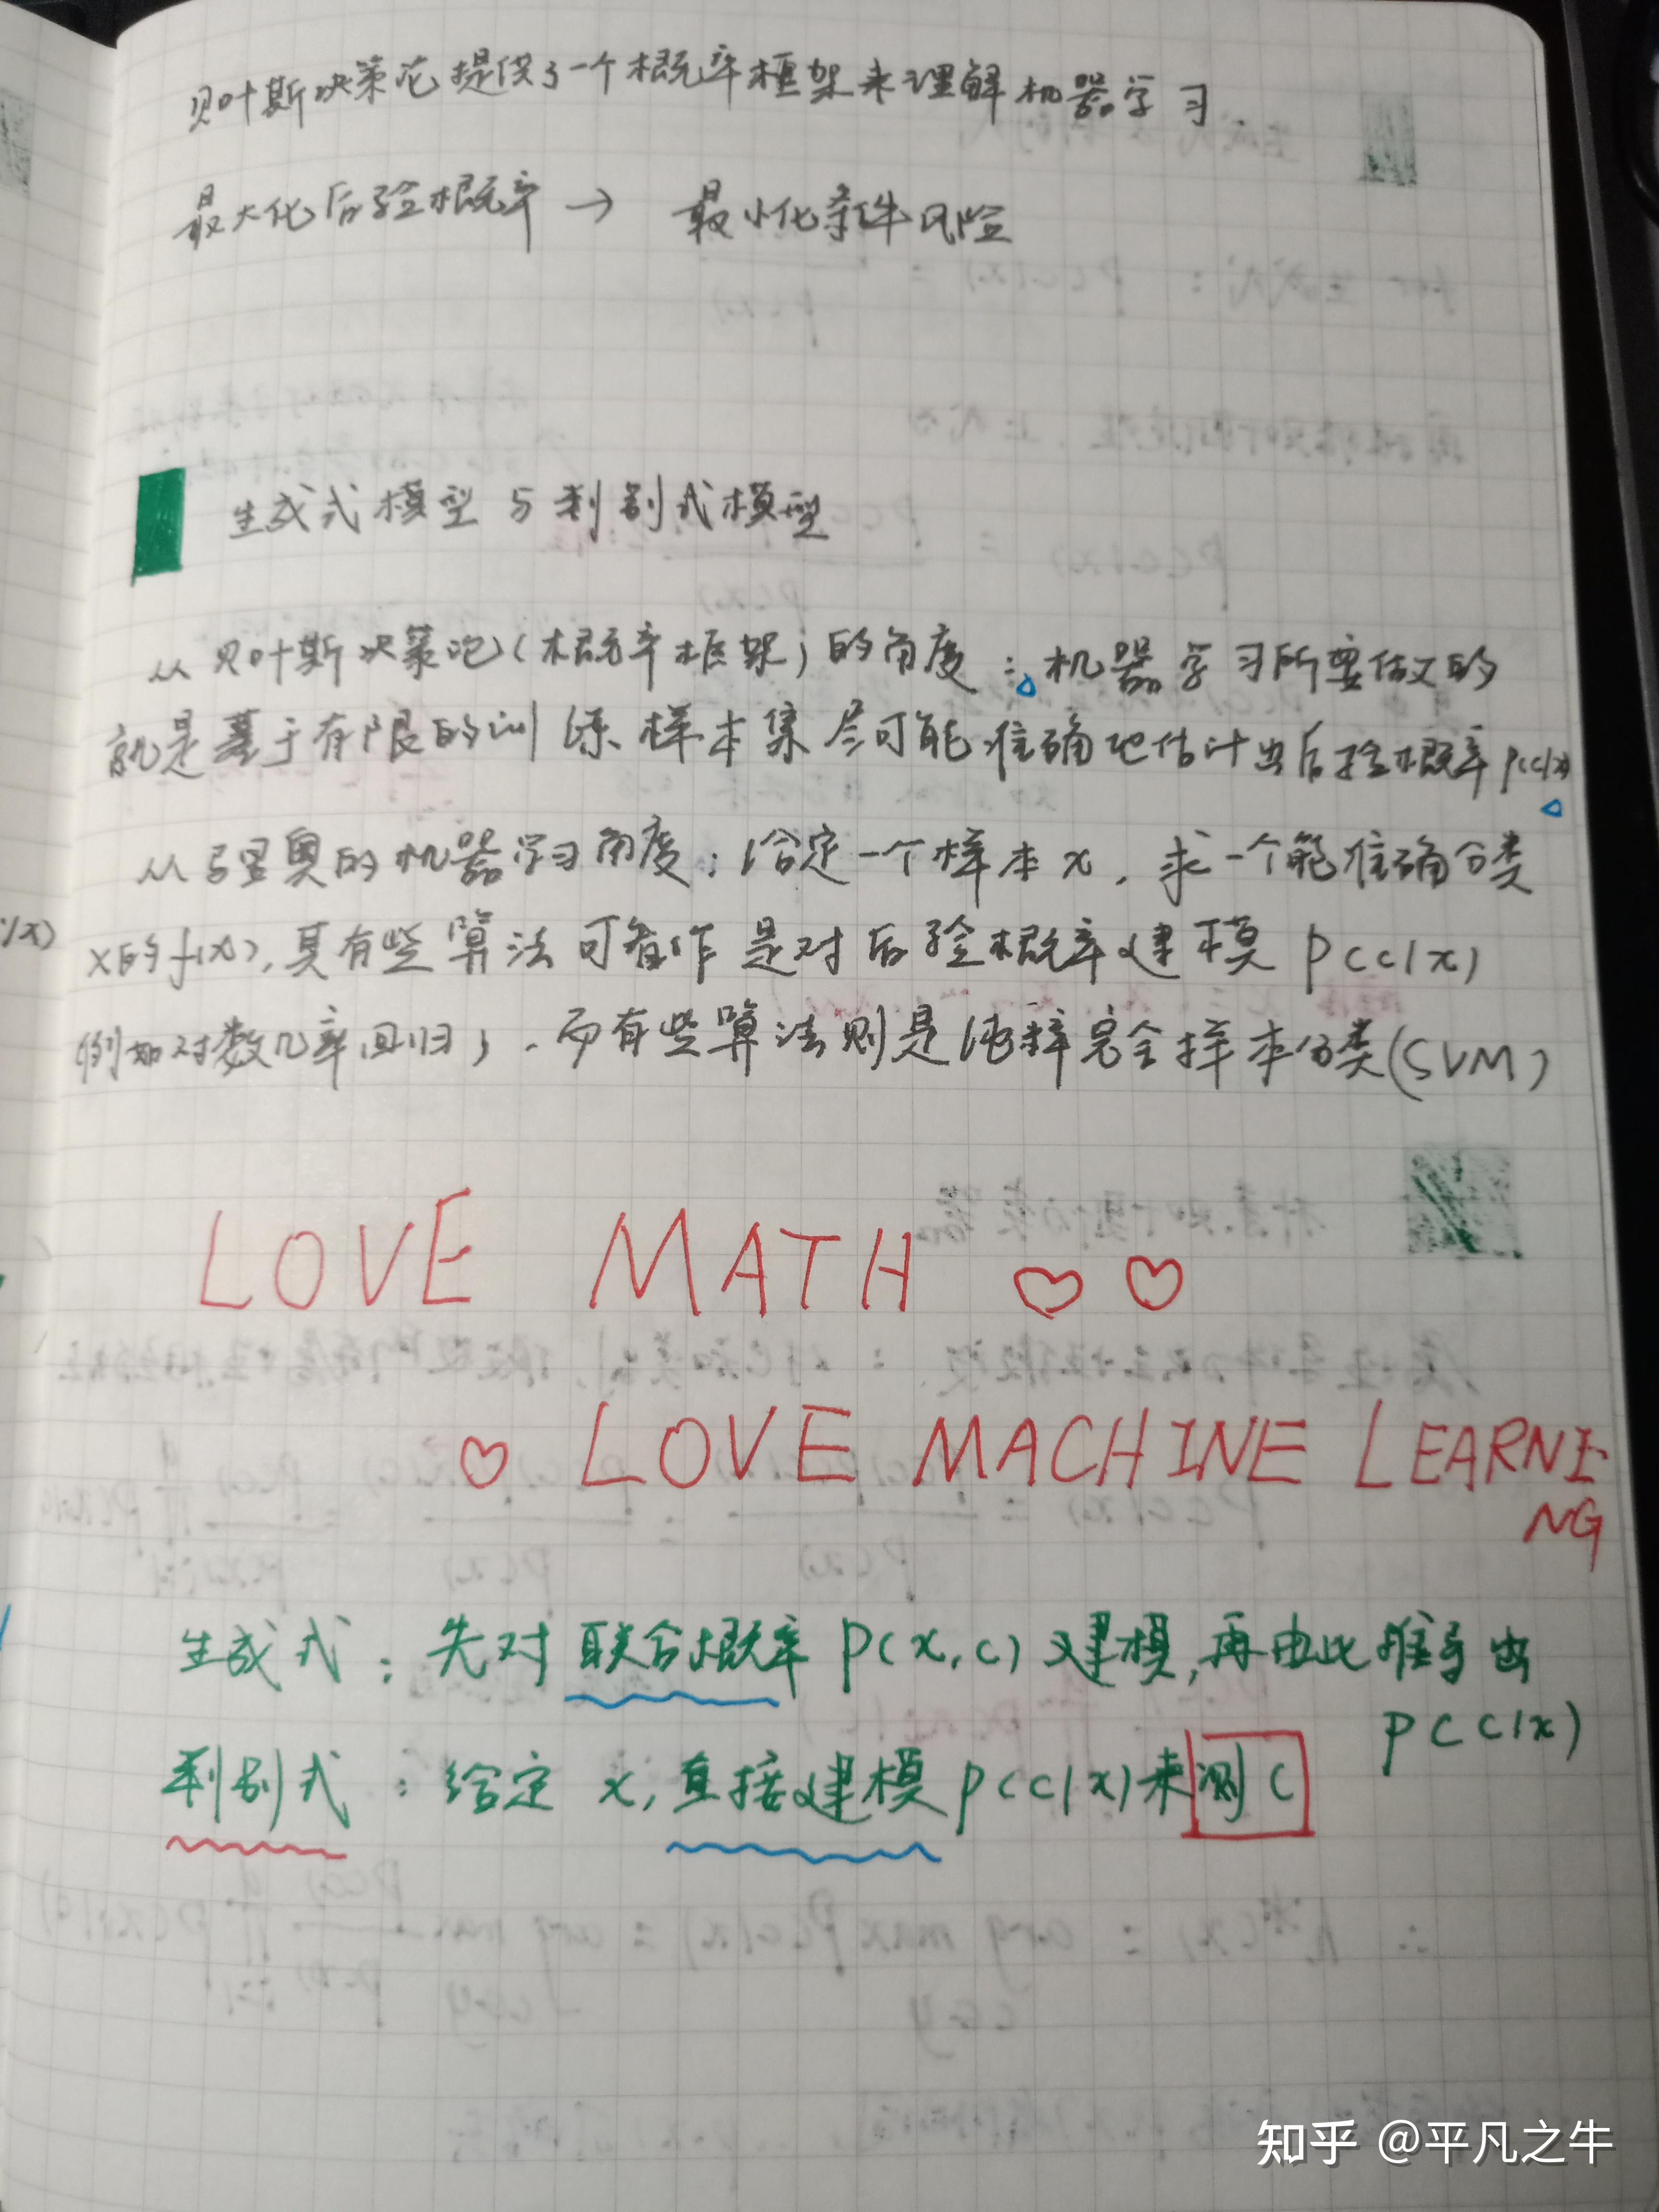 贝叶斯决策论提供了一个概率框架来理解机器学习.
最大化后验概率 → 最小化条件风险
生成式模型与判别式模型
从贝叶斯决策论(概率框架)的角度:机器学习所要做的
就是基于有限的训练样本集尽可能准确地估计出后验概率 P(c|x)
的机器学习角度:给定一个样本x,求一个能准确分类
x的f(x),其有些算法可看作是对后验概率建模 P(c|x)
(例如对数几率回归),而有些算法则是纯粹完全样本分类(SVM)
LOVE MATH ♡ ♡
♡ LOVE MACHINE LEARNI-
NG
生成式:先对联合概率 P(x,c) 建模,再由此推导出
P(c|x)
判别式:给定 x,直接建模 P(c|x)来测 c
知乎 @平凡之牛